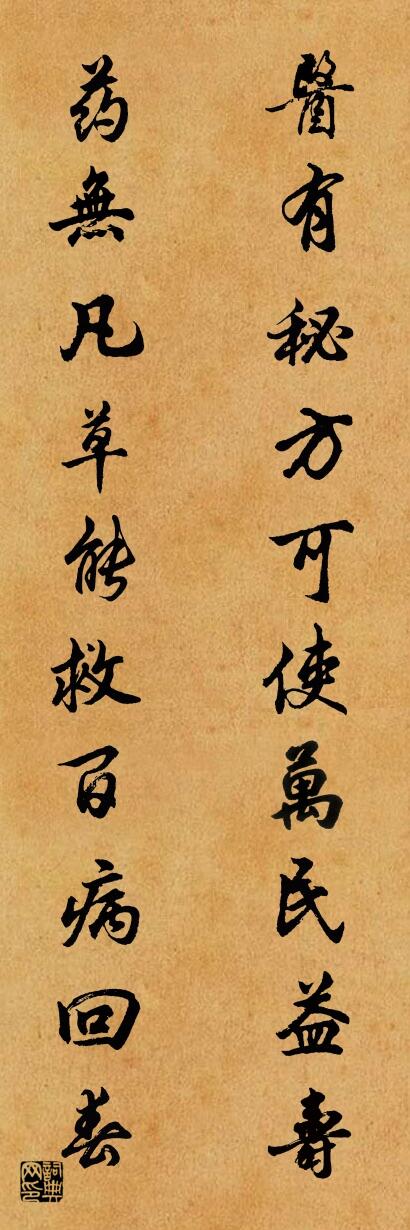 醫有秘方可使萬民益壽
药無凡草能救百病回春
詞典网印